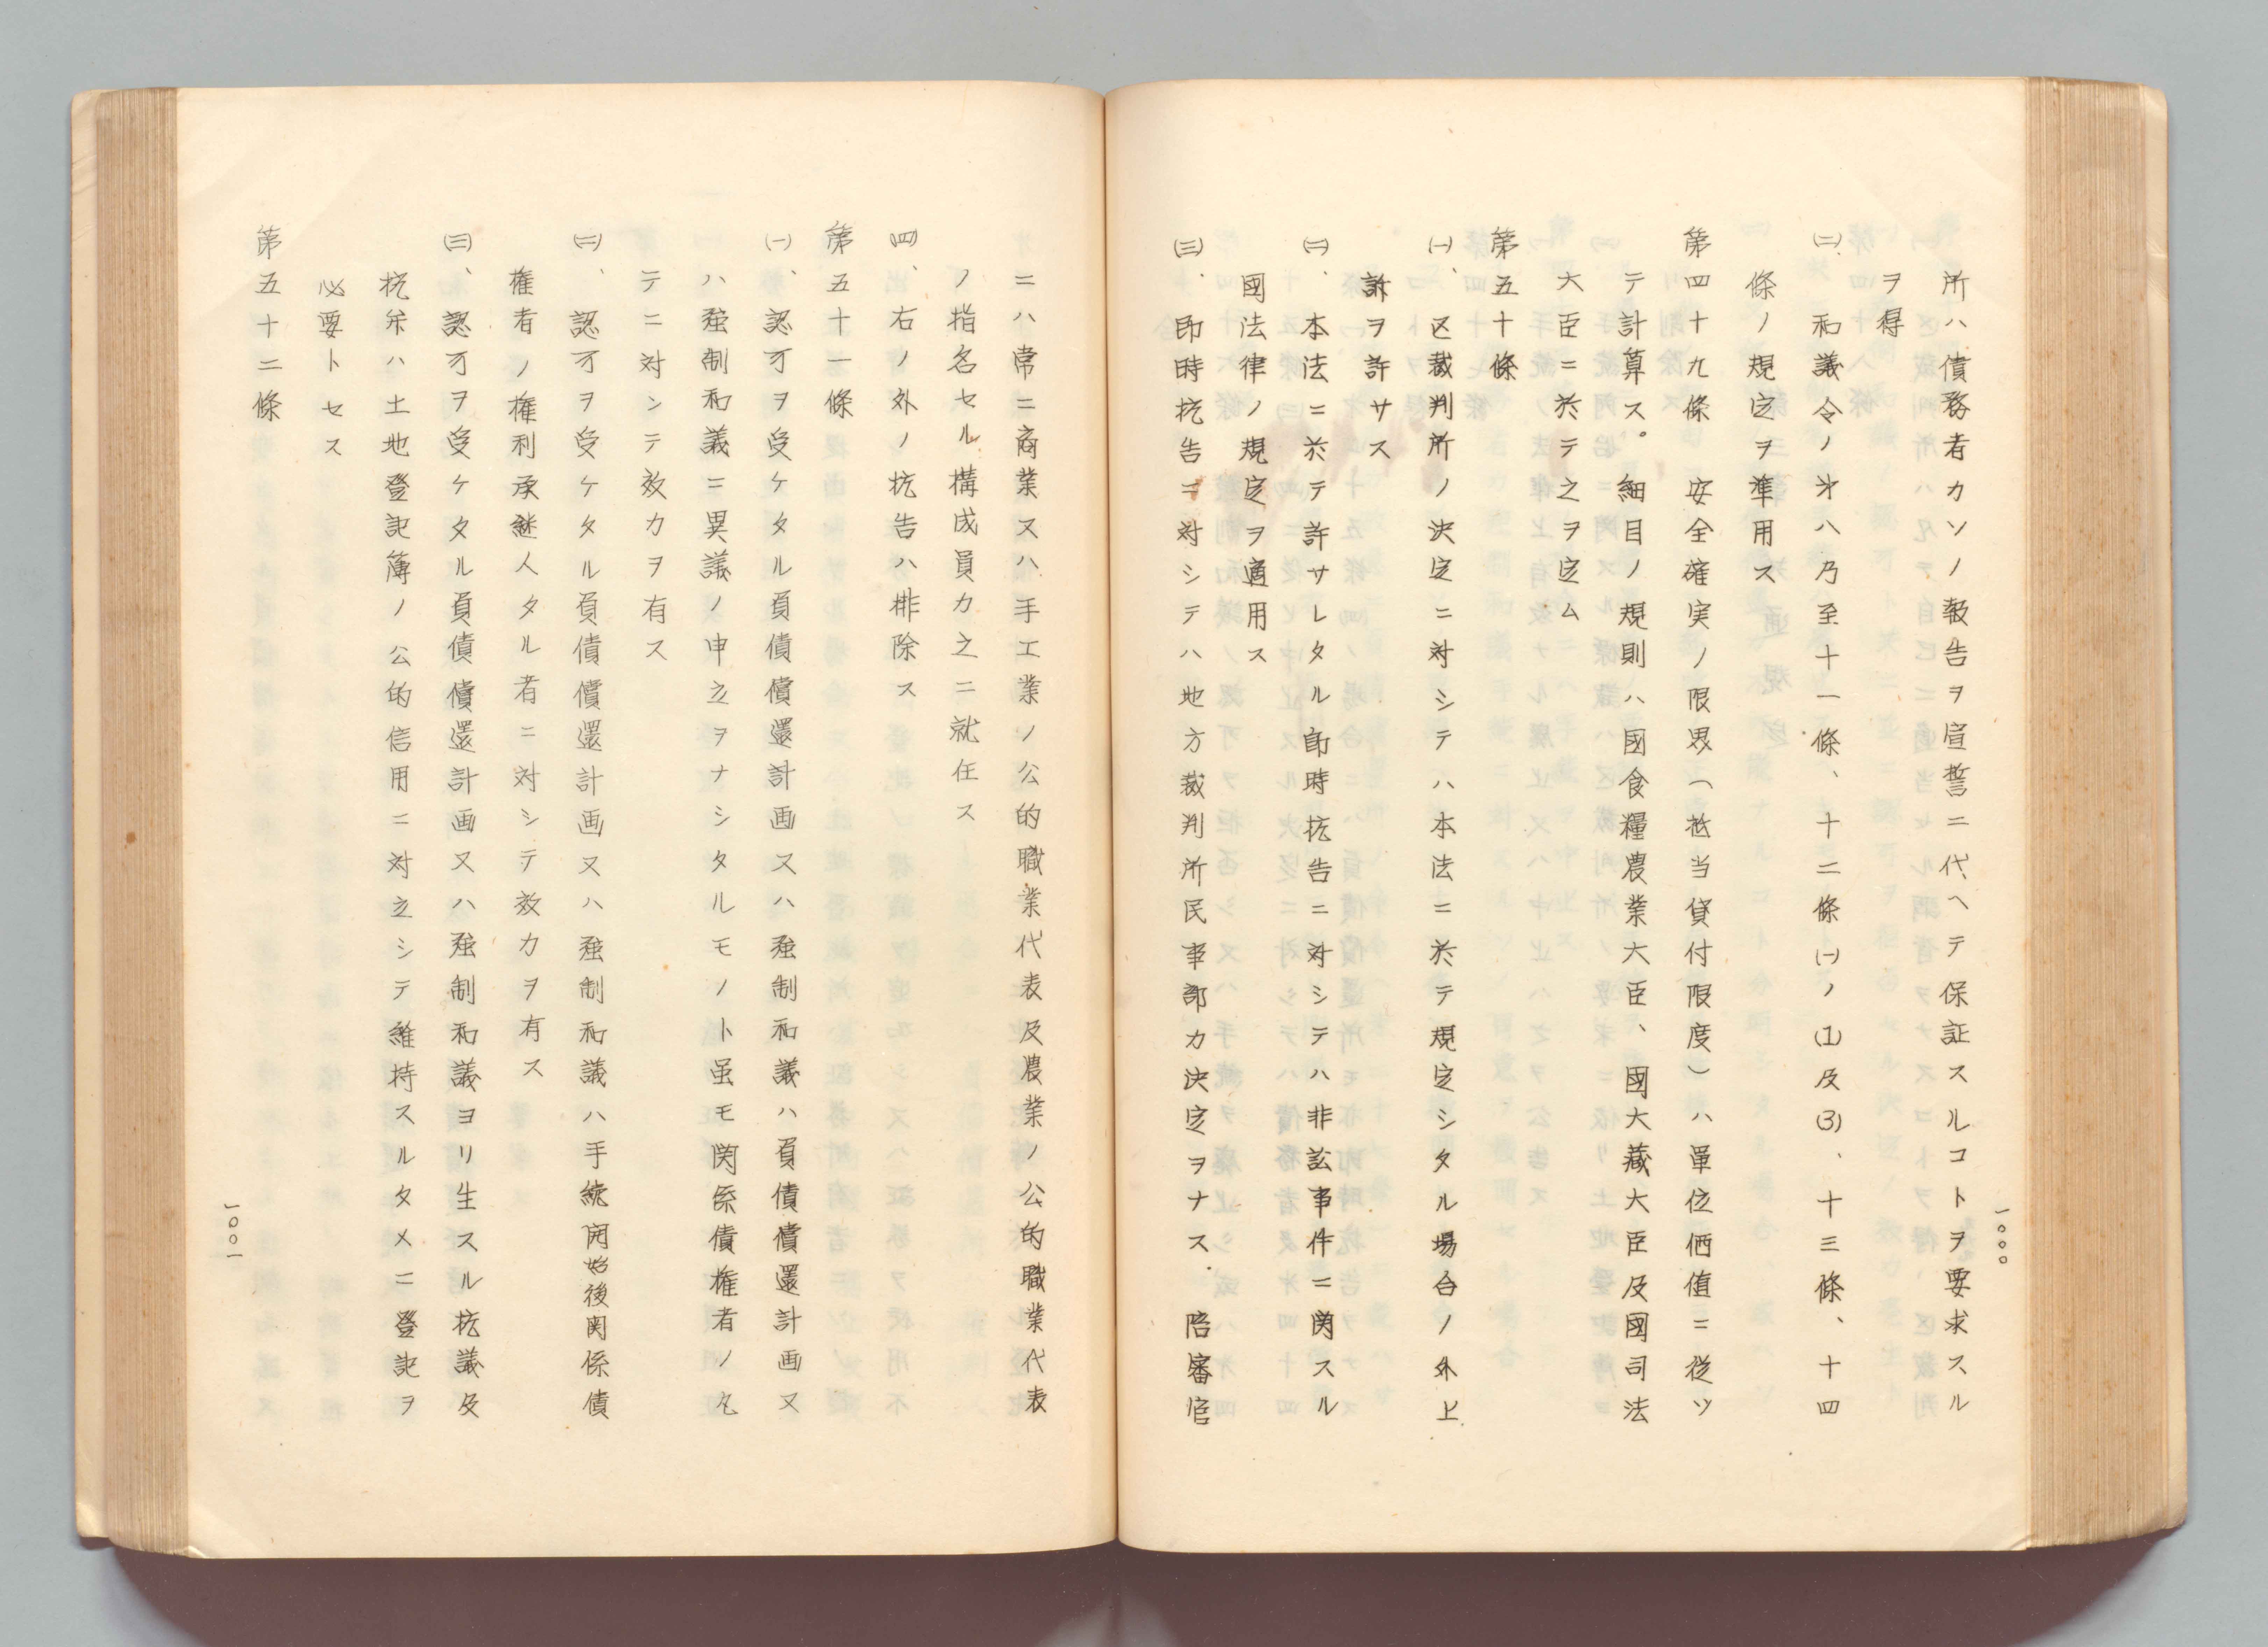 所ハ債務者カソノ報告ヲ宣誓ニ代ヘテ保証スルコトヲ要求スル
ヲ得
㈡、和議令ノ㐧八乃至十一條、十二條㈠ノ⑴及⑶、十三條、十四
條ノ規定ヲ準用ス
第四十九條　安全確実ノ限界（抵当貸付限度）ハ單位価値ニ従ツ
テ計算ス。細目ノ規則ハ國食糧農業大臣、國大藏大臣及國司法
大臣ニ於テ之ヲ定ム
第五十條
㈠、区裁判所ノ決定ニ対シテハ本法ニ於テ規定シタル場合ノ外上
訴ヲ許サス
㈡、本法ニ於テ許サレタル即時抗告ニ対シテハ非訟事件ニ関スル
國法律ノ規定ヲ適用ス
㈢、即時抗告ニ対シテハ地方裁判所民事部カ決定ヲナス．陪審官
一〇〇〇
ニハ常ニ商業又ハ手工業ノ公的職業代表及農業ノ公的職業代表
ノ指名セル構成員カ之ニ就任ス
㈣、右ノ外ノ抗告ハ排除ス
第五十一條
㈠、認可ヲ受ケタル負債償還計画又ハ強制和議ハ負債償還計画又
ハ強制和議ニ異議ノ申立ヲナシタルモノト虽モ関係債権者ノ凡
テニ対シテ效力ヲ有ス
㈡、認可ヲ受ケタル負債償還計画又ハ強制和議ハ手続開始後関係債
権者ノ権利承継人タル者ニ対シテ效力ヲ有ス
㈢、認可ヲ受ケタル負債償還計画又ハ強制和議ヨリ生スル抗議及
抗弁ハ土地登記簿ノ公的信用ニ対立シテ維持スルタメニ登記ヲ
必要トセス
第五十二條
一〇〇一